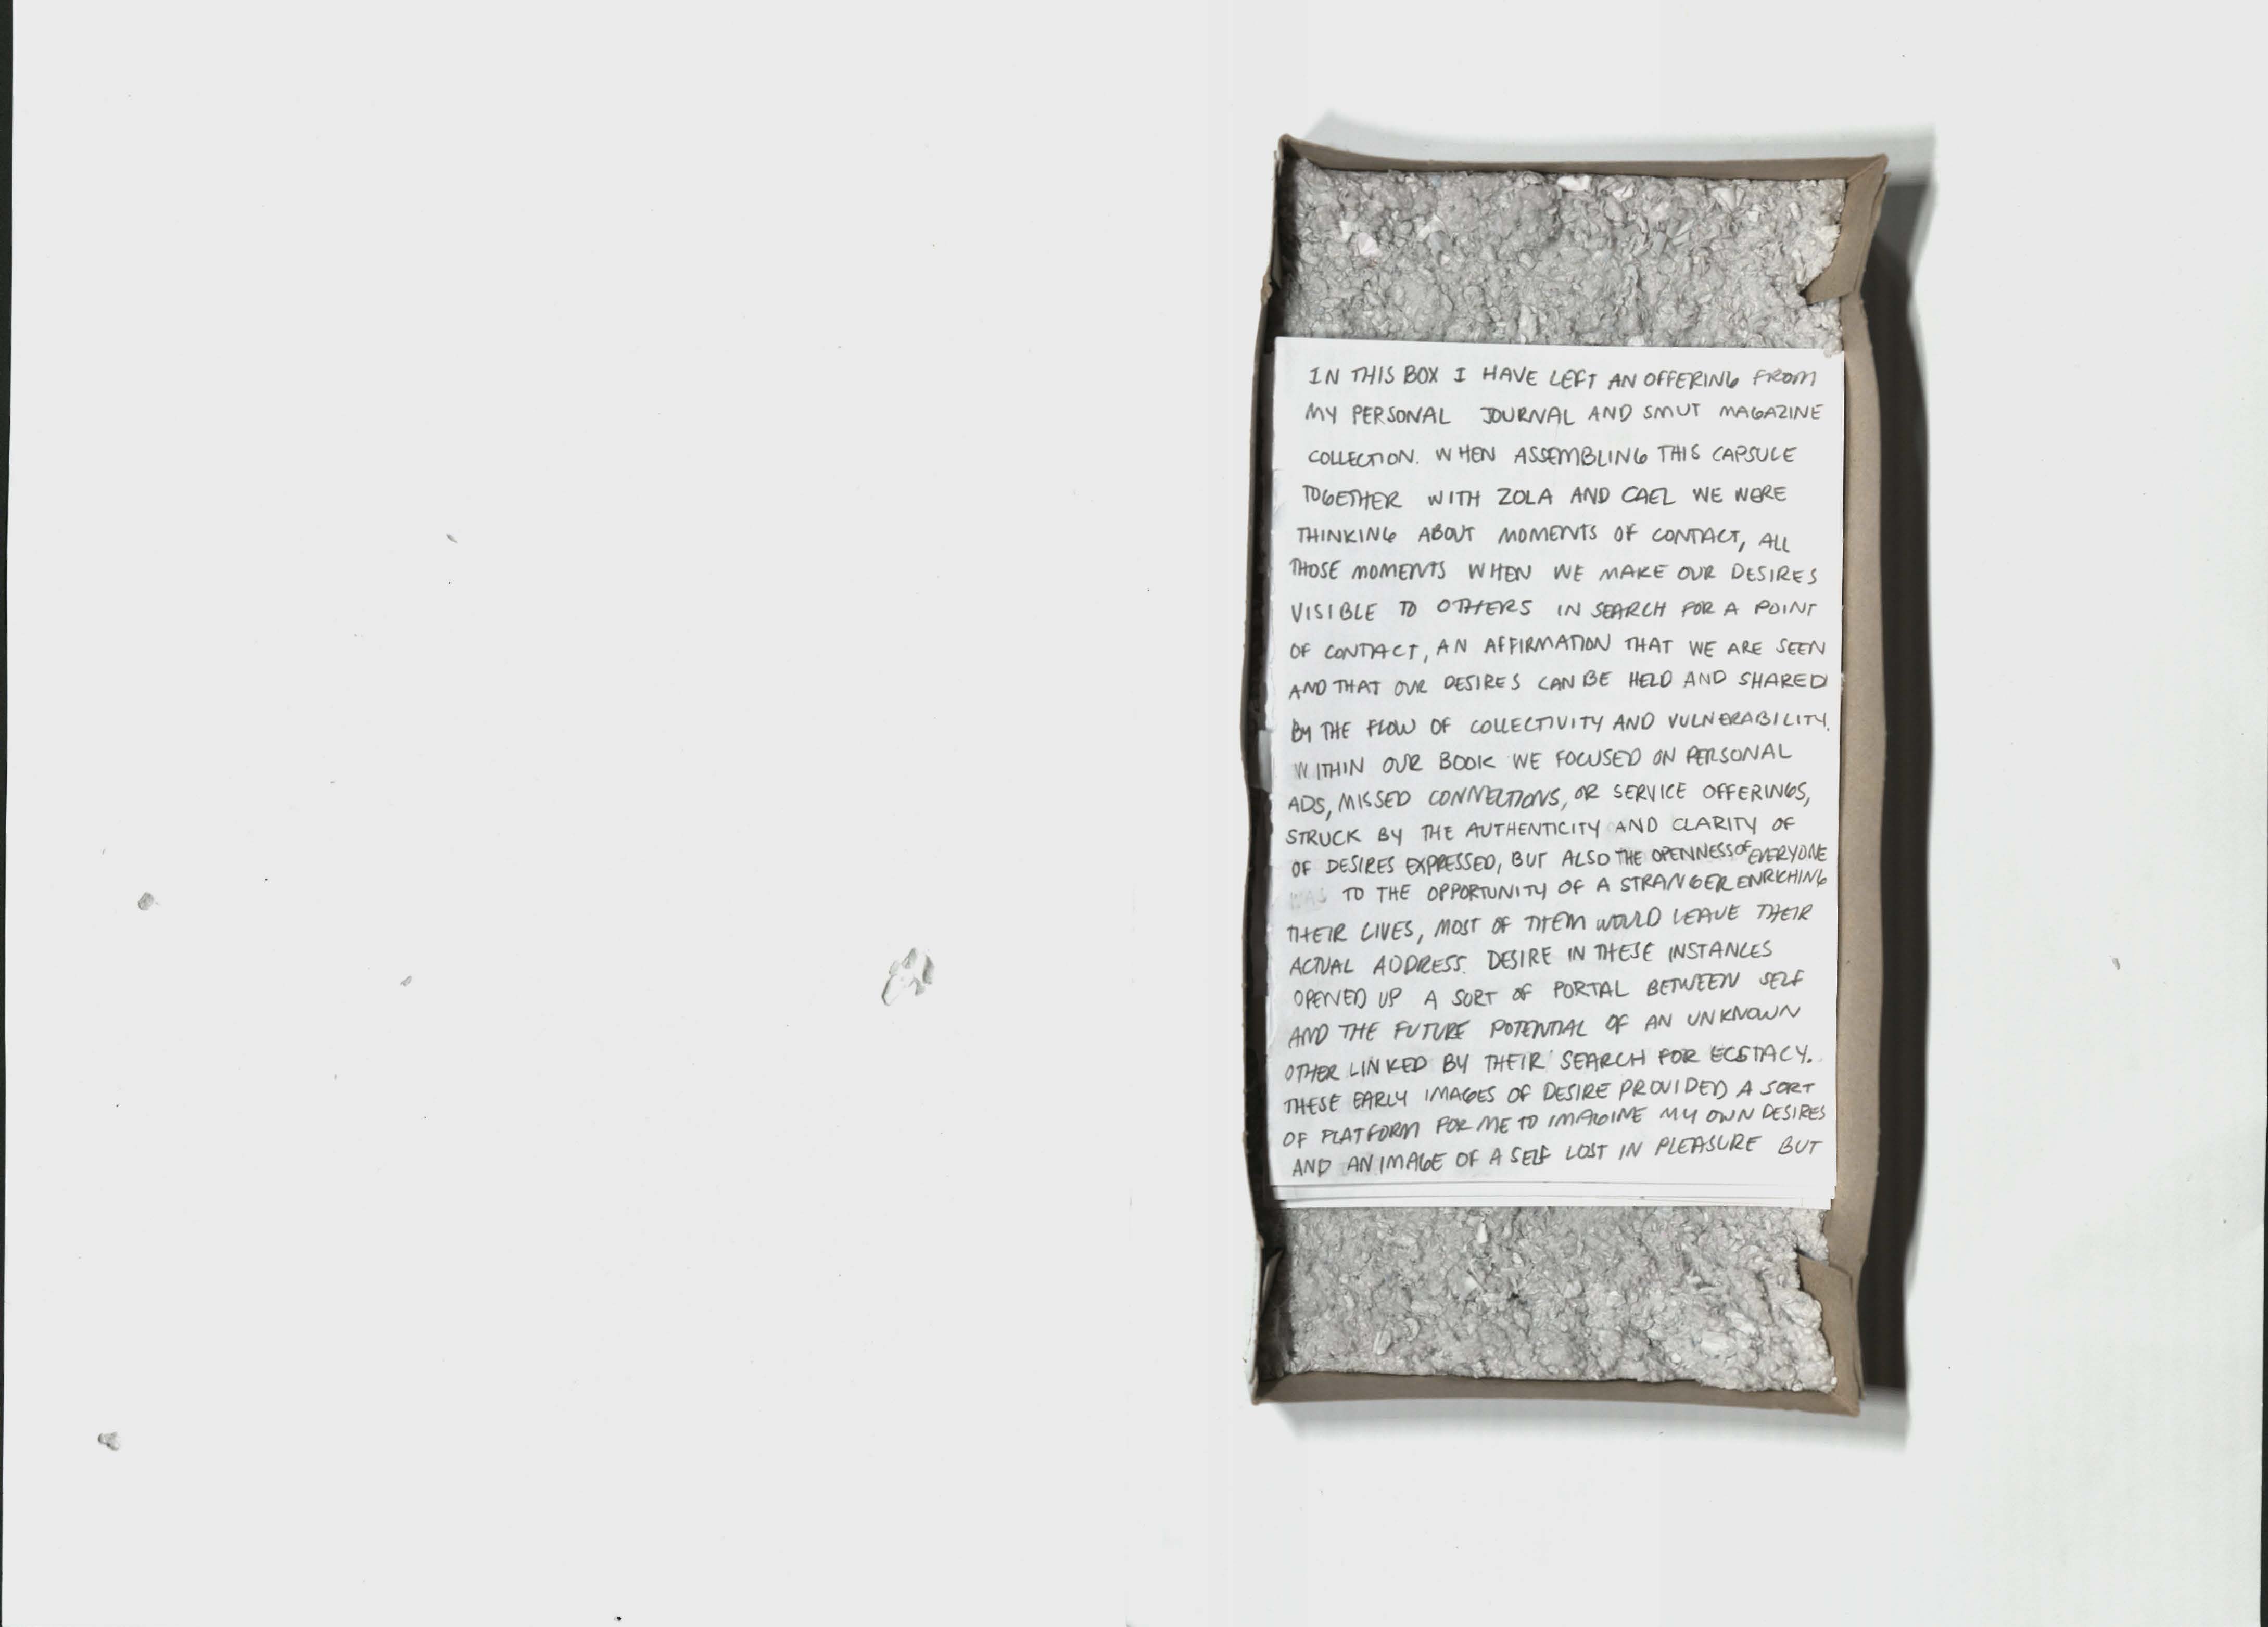 IN THIS BOX I HAVE LEFT AN OFFERING FROM
MY PERSONAL JOURNAL AND SMUT MAGAZINE
COLLECTION. WHEN ASSEMBLING THIS CAPSULE
TOGETHER WITH ZOLA AND CAEL WE WERE
THINKING ABOUT MOMENTS OF CONTACT, ALL
THOSE MOMENTS WHEN WE MAKE OUR DESIRES
VISIBLE TO OTHERS IN SEARCH FOR A POINT
OF CONTACT, AN AFFIRMATION THAT WE ARE SEEN
AND THAT OUR DESIRES CAN BE HELD AND SHARED
BY THE FLOW OF COLLECTIVITY AND VULNERABILITY.
WITHIN OUR BOOK WE FOCUSED ON PERSONAL
ADS, MISSED CONNECTIONS, OR SERVICE OFFERINGS,
STRUCK BY THE AUTHENTICITY AND CLARITY OF
OF DESIRES EXPRESSED, BUT ALSO THE OPENNESS OF EVERYONE
WAS TO THE OPPORTUNITY OF A STRANGER ENRICHING
THEIR LIVES, MOST OF THEM WOULD LEAVE THEIR
ACTUAL ADDRESS. DESIRE IN THESE INSTANCES
OPENED UP A SORT OF PORTAL BETWEEN SELF
AND THE FUTURE POTENTIAL OF AN UNKNOWN
OTHER LINKED BY THEIR SEARCH FOR ECSTACY.
THESE EARLY IMAGES OF DESIRE PROVIDED A SORT
OF PLATFORM FOR ME TO IMAGINE MY OWN DESIRES
AND AN IMAGE OF A SELF LOST IN PLEASURE BUT